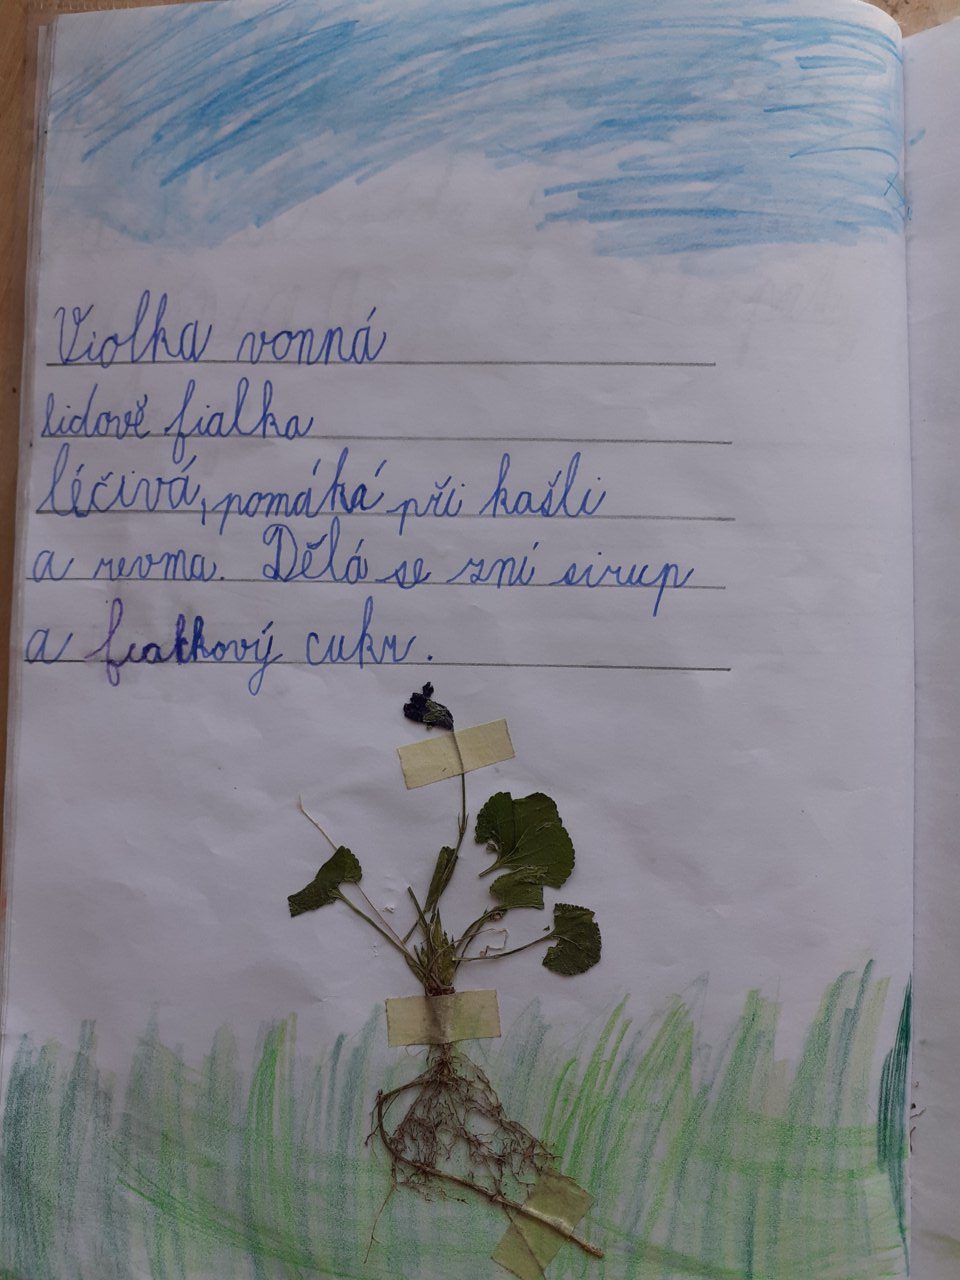 Violka vonná
lidově fialka
léčivá, pomáká při kašli
a revma. Dělá se zní sirup
a fialkový cukr.